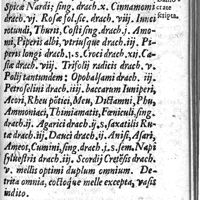 Spicæ Nardi; sing. drach. x. Cinnamomi
drach. vj. Rosæ fol. sic. drach. viij. Junci
rotundi, Thuris, Costi sing. drach. j. Amo-
mi, Piperis albi, utriusque drach. iij. Pi-
peris longi drach. j. s. Croci drach. xij. Ca-
siæ drach. viij. Trifolij radicis drach. v.
Polij tantundem: Opobalsami drach. iij.
Petroselini drach. iiij. baccarum Iuniperi,
Acori, Rheu põtici, Meu, Dictamni, Phu,
Ammoniaci, Thimiamatis, Fœniculi, sing.
drach. ij. Agarici drach. ij. s, saxatilis Ru-
tæ drach. iij. Dauci drach. ij. Anisi, Asari,
Ameos, Cumini, sing. drach. j. s. sem. Napi
sylvestris drach. iij. Scordij Cretẽsis drach.
v. mellis optimi duplum omnium. De-
trita omnia, coctoque melle excepta, vasis
indito.
scripta.